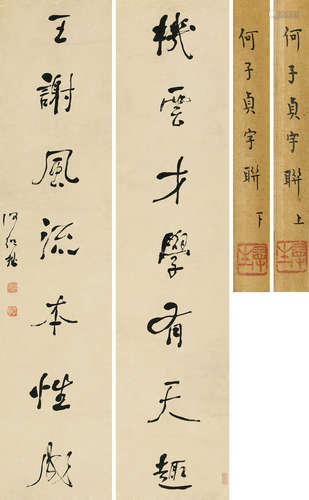 何子貞字聯 上
何子貞字聯 下
機雲才學有天趣
王謝風流本性成
何紹基